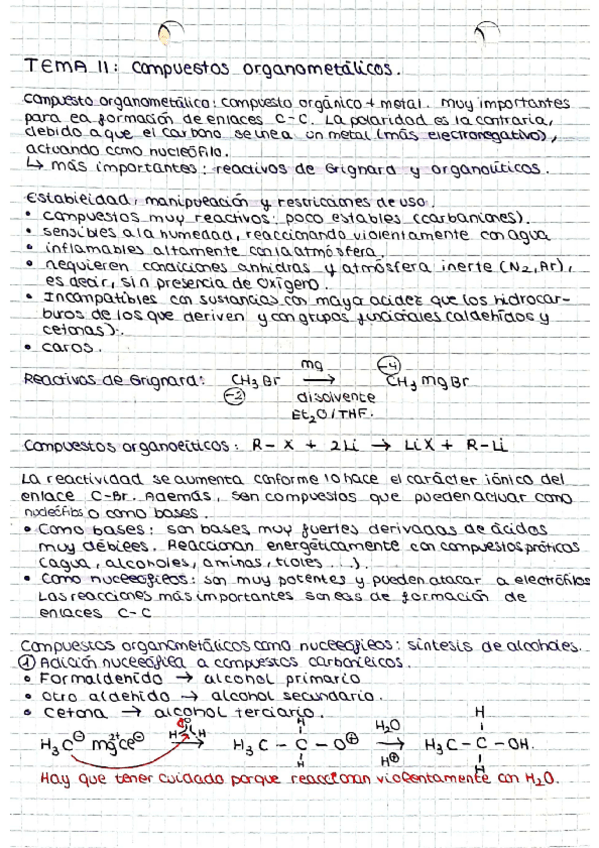 TEMA 11: Compuestos organometálicos.
Compuesto organometálico: compuesto orgánico + metal. Muy importantes
para la formación de enlaces C-C. La polaridad es la contraria,
debido a que el carbono se une a un metal (más electronegativo),
actuando como nucleófilo.
↳ más importantes: reactivos de Grignard y organolíticos.
Estabilidad, manipulación y restricciones de uso.
• compuestos muy reactivos: poco estables (carbaniones).
• sensibles a la humedad, reaccionando violentamente con agua
• inflamables altamente con la atmósfera.
• requieren condiciones anhidras y atmósfera inerte (N₂, Ar),
es decir, sin presencia de oxígeno.
• Incompatibles con sustancias con mayor acidez que los hidrocar-
buros de los que deriven y con grupos funcionales (aldehídos y
cetonas).
• caros.
Reactivos de Grignard: CH₃Br →(Mg) CH₃MgBr
-2 -4
disolvente
Et₂O/THF.
Compuestos organolíticos: R-X + 2Li → LiX + R-Li
La reactividad se aumenta conforme lo hace el carácter iónico del
enlace C-Br. Además, son compuestos que pueden actuar como
nucleófilos o como bases.
• Como bases: son bases muy fuertes derivadas de ácidos
muy débiles. Reaccionan energéticamente con compuestos próticos
(agua, alcoholes, aminas, tioles...).
• Como nucleófilos: son muy potentes y pueden atacar a electrófilos
Las reacciones más importantes son las de formación de
enlaces C-C
Compuestos organometálicos como nucleófilos: síntesis de alcoholes.
① Adición nucleófila a compuestos carbonílicos.
• Formaldehído → alcohol primario
• otro aldehído → alcohol secundario.
• cetona → alcohol terciario.
H₃C⊖ Mg²⁺Cl⊖ → H₃C-C-O⊕ → H₃C-C-OH.
H O H
H H
H₂O
H⊕
H H
Hay que tener cuidado porque reaccionan violentamente con H₂O.